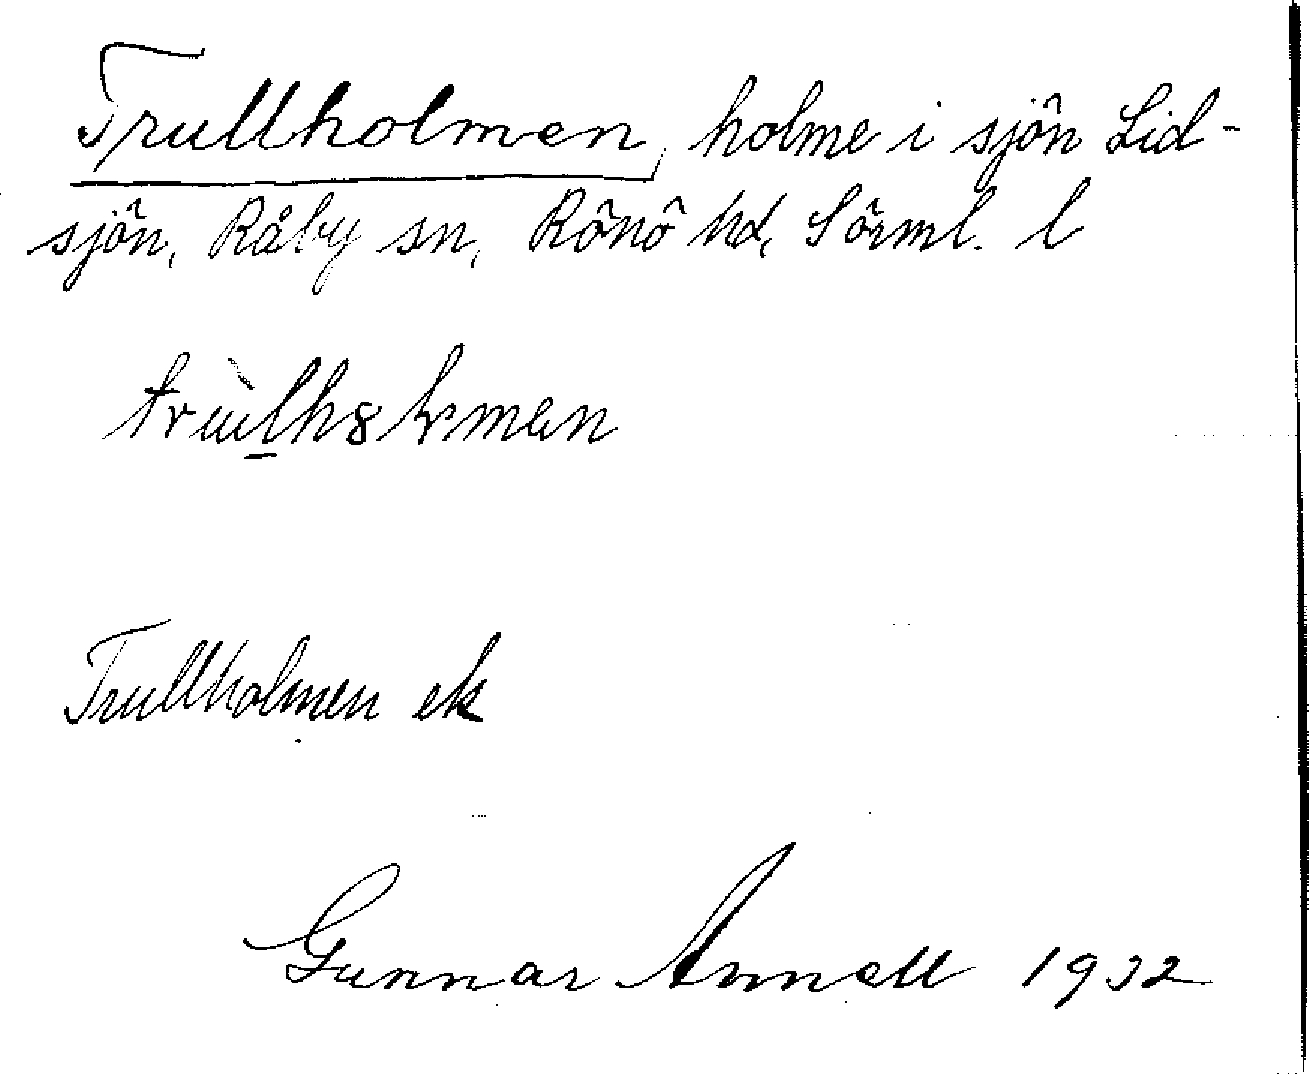 Trullholmen, holme i sjön Lid-
sjön, Råby sn, Rönö hd, Sörml. l
Trullholmen ek
Gunnar Annell 1932